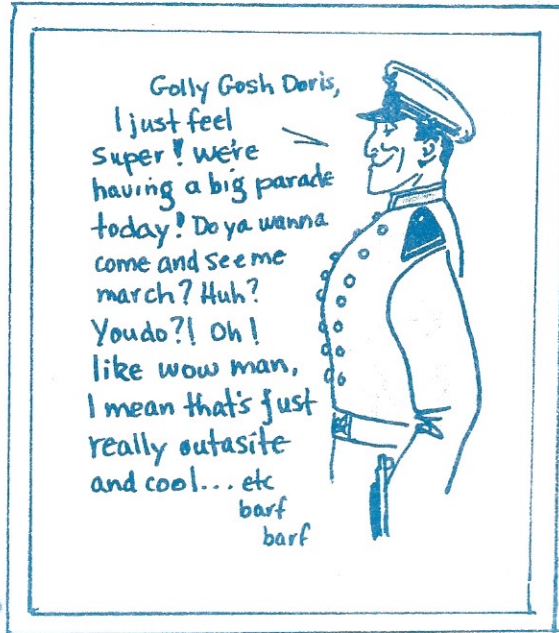 Golly Gosh Doris,
I just feel
super! we're
having a big parade
today! Do ya wanna
come and see me
march? Huh?
You do?! Oh!
like wow man,
I mean that's just
really outasite
and cool... etc
barf
barf